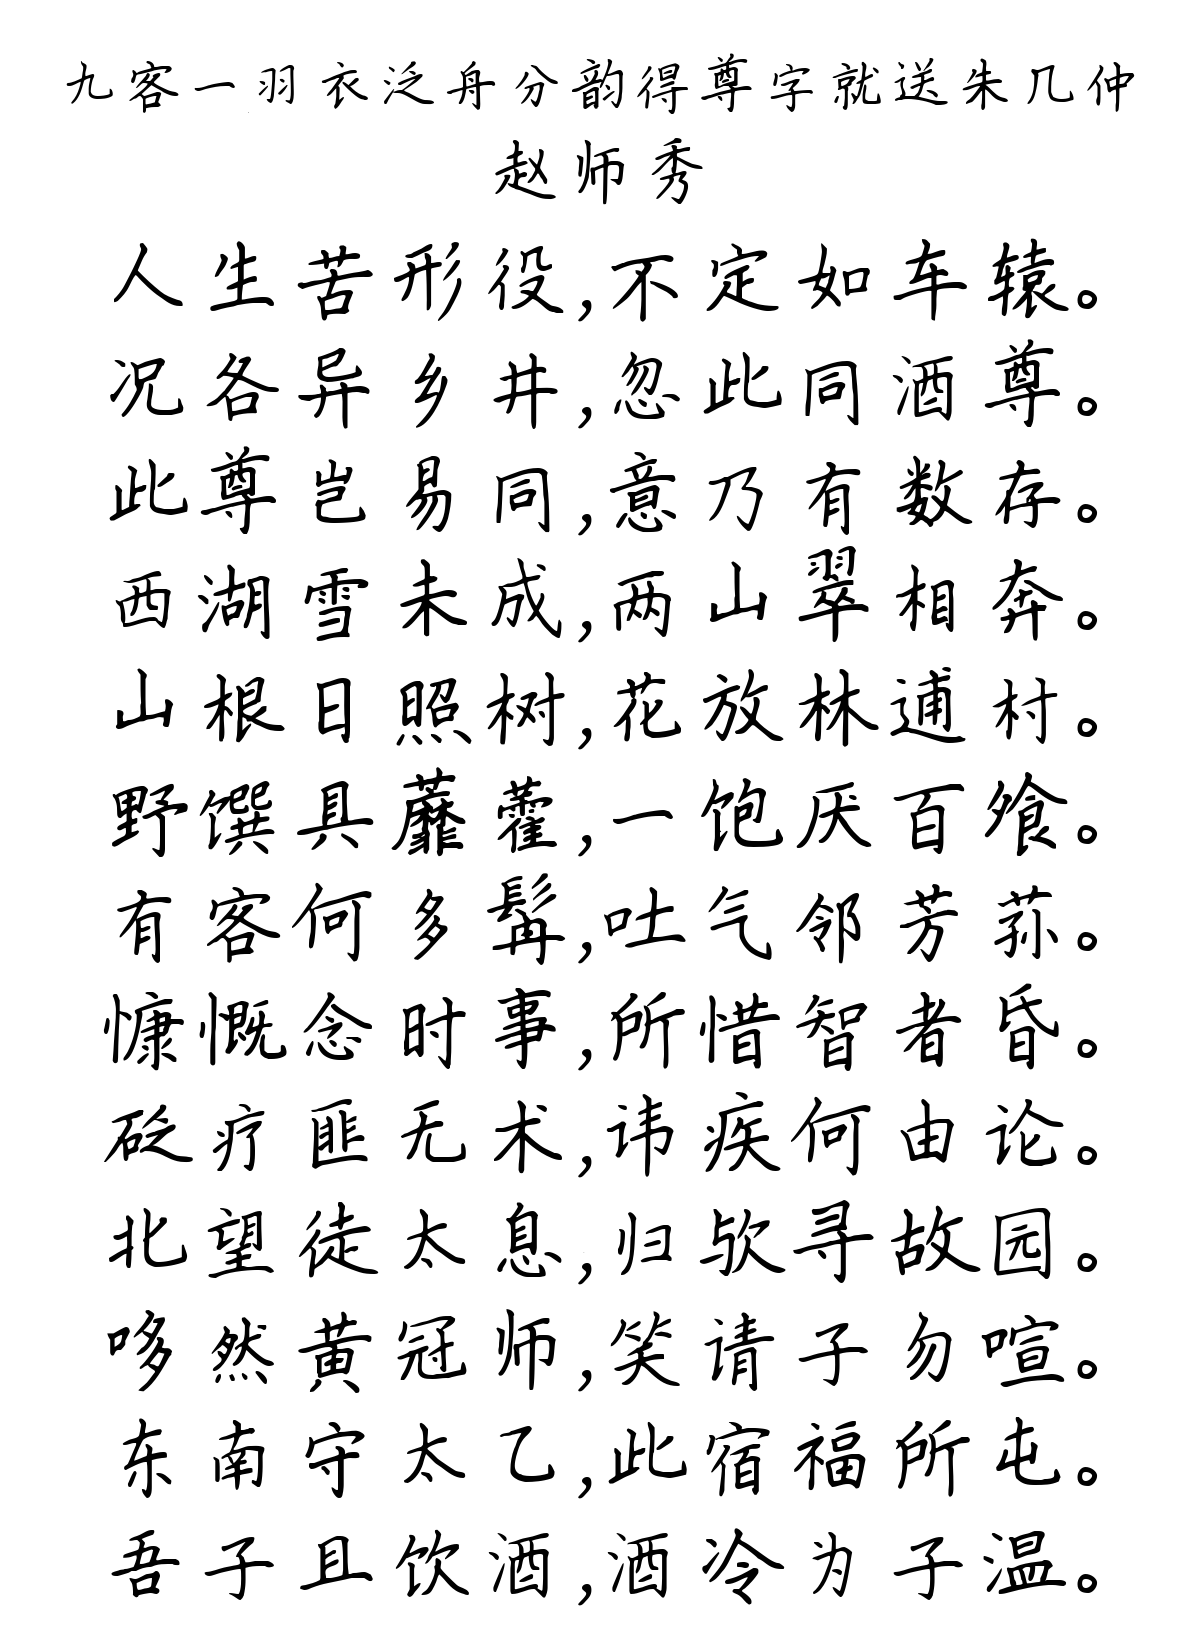 九客一羽衣泛舟分韵得尊字就送朱几仲
赵师秀
人生苦形役,不定如车辕。
况各异乡井,忽此同酒尊。
此尊岂易同,意乃有数存。
西湖雪未成,两山翠相奔。
山根日照树,花放林逋村。
野馔具蘼藿,一饱厌百飧。
有客何多髯,吐气邻芳荪。
慷慨念时事,所惜智者昏。
砭疗匪无术,讳疾何由论。
北望徒太息,归欤寻故园。
哆然黄冠师,笑请子勿喧。
东南守太乙,此宿福所屯。
吾子且饮酒,酒冷为子温。